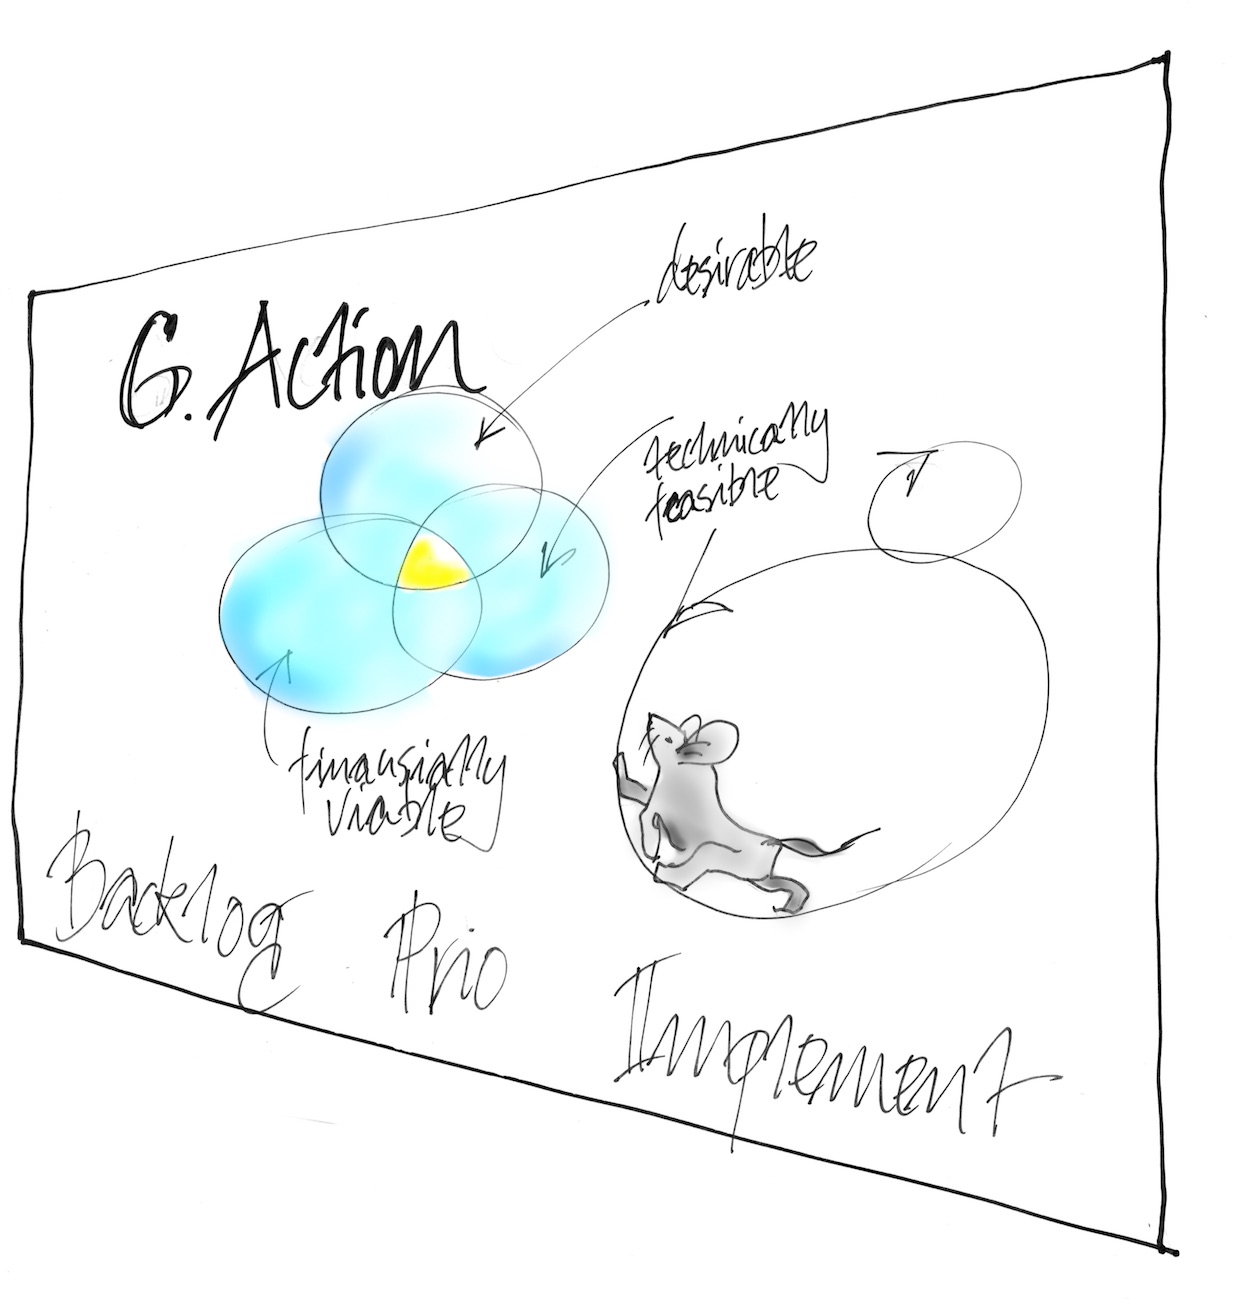 6. Action
desirable
technically
feasible
finansially
viable
Backlog
Prio
Implement